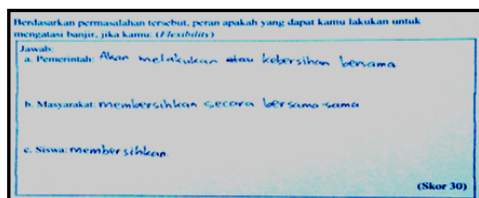 Berdasarkan permasalahan tersebut, peran apakah yang dapat kamu lakukan untuk
mengatasi banjir, jika kamu: (Flexibility)
Jawab:
a. Pemerintah: Akan melakukan atau kebersihan bersama
b. Masyarakat: membersihkan secara bersama-sama
c. Siswa: membersihkan.
(Skor 30)